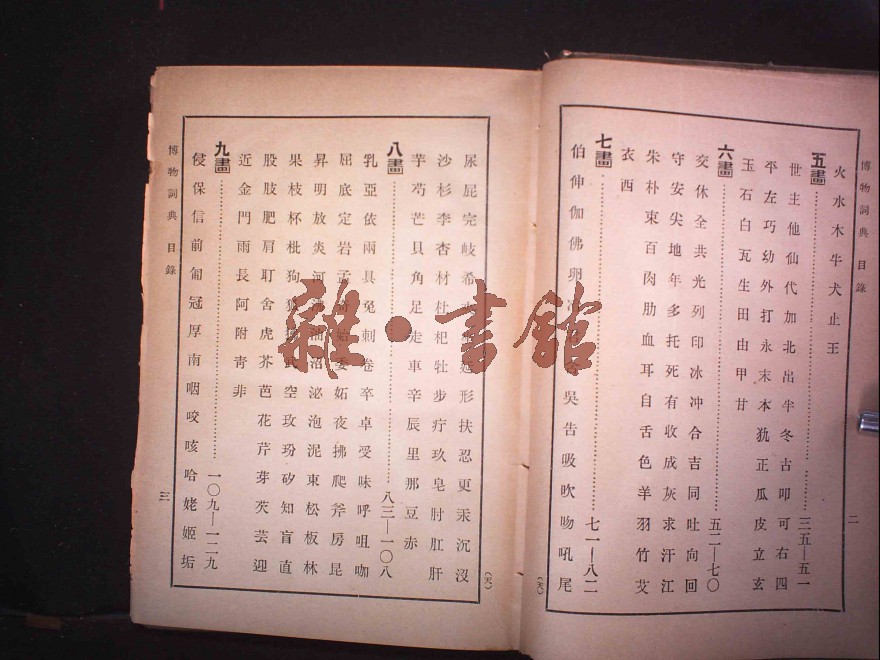 博物詞典 目錄
火水木牛犬止王
五畫 三五—五一
世主他仙代加北出半冬古叩可右四
平左巧幼外打永末本犰正瓜皮立玄
玉石白瓦生田由甲甘
六畫 五二—七〇
交休全共光列印冰冲合吉同吐向回
守安尖地年多托死有收成灰求汗江
朱朴束百肉肋血耳自舌色羊羽竹艾
衣西
七畫 七一—八二
伯伸伽佛卵吳告吸吹吻吼尾
二
博物詞典 目錄
尿屁完岐希形扶忍更汞沉沒
沙杉李杏材杜杞牡步疔玖皂肘肛肝
芋芍芒貝角足走車辛辰里那豆赤
八畫 八三—一〇八
乳亞依兩具兔刺卷卒卓受味呼咀咖
屈底定岩孟始委妬夜拂爬斧房昆
昇明放炎河油沼泌泡泥東松板林
果枝杯枇狗武空玫玢矽知盲直
股肢肥肩耵舍虎芥芭花芹芽芡芸迎
近金門雨長阿附青非
九畫 一〇九—一二九
侵保信前匍冠厚南咽咬咳哈姥姬垢
三
雜·書館